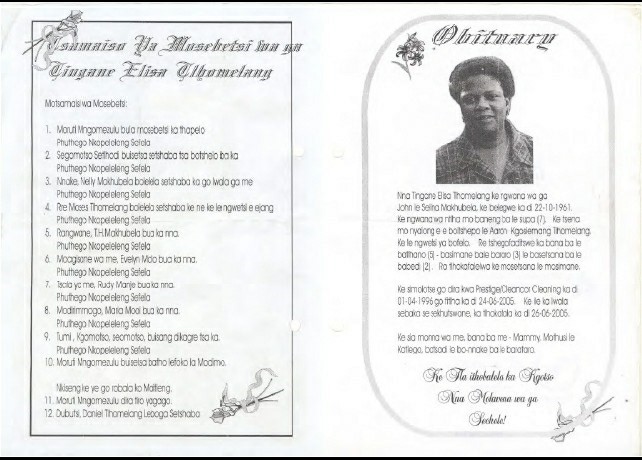 Tsamaiso Ya Mosebetsi wa ga
Tingane Elisa Tlhomelang
Motsamaisi wa Mosebetsi:
1. Moruti Mngomezulu bula mosebetsi ka thapelo
Phuthego Nkopeleleng Sefela
2. Segomotso Setlhodi buisetsa setshaba tsa botshelo iba ka
Phuthego Nkopeleleng Sefela
3. Nnake, Nelly Makhubela bolelela setshaba ka go lwala ga me
Phuthego Nkopeleleng Sefela
4. Rre Moses Tlhomelang bolelela setshaba ke ne ke le ngwetsi e ejang
Phuthego Nkopeleleng Sefela
5. Rangwane, T.H.Makhubela bua ka nna.
Phuthego Nkopeleleng Sefela
6. Moagisane wa me, Evelyn Mdo bua ka nna.
Phuthego Nkopeleleng Sefela
7. Tsala ya me, Rudy Manje bua ka nna.
Phuthego Nkopeleleng Sefela
8. Modirimmogo, Maria Mooi bua ka nna.
Phuthego Nkopeleleng Sefela
9. Tumi, Kgomotso, seomotso, buisang dikagre tsa ka.
Phuthego Nkopeleleng Sefela
10. Moruti Mngomezulu buisetsa batho lefoko la Modimo.
Nkiseng ke ye go robala ko Mafikeng.
11. Moruti Mngomezulu dira tiro yagago.
12. Dubutsi, Daniel Tlhomelang Leboga Setshaba
Obituary
Nna Tingane Elisa Tlhomelang ke ngwana wa ga
John le Selina Makhubela, ke belegwe ka di 22-10-1961.
Ke ngwana wa ntlha mo baneng ba le supa (7). Ke tsena
mo nyalong e e boitshepo le Aaron Kgosiemang Tlhomelang.
Ke le ngwetsi ya bofelo. Re tshegofaditswe ka bana ba le
batlhano (5) - basimane bale bararo (3) le basetsana ba le
babedi (2). Ra tlhokafalelwa ke mosetsana le mosimane.
Ke simolotse go dira kwa Prestige/Cleancor Cleaning ka di
01-04-1996 go fitlha ka di 24-06-2005. Ke ile ka lwala
sebaka se sekhutswane, ka tlhokafala ka di 26-06-2005.
Ke sia monna wa me, bana ba me - Mammy, Mothusi le
Katlego, batsadi le bo-nnake ba le barataro.
Ke Tla itlhobalela ka Kgotso
Nna Molwena wa ga
Sechele!